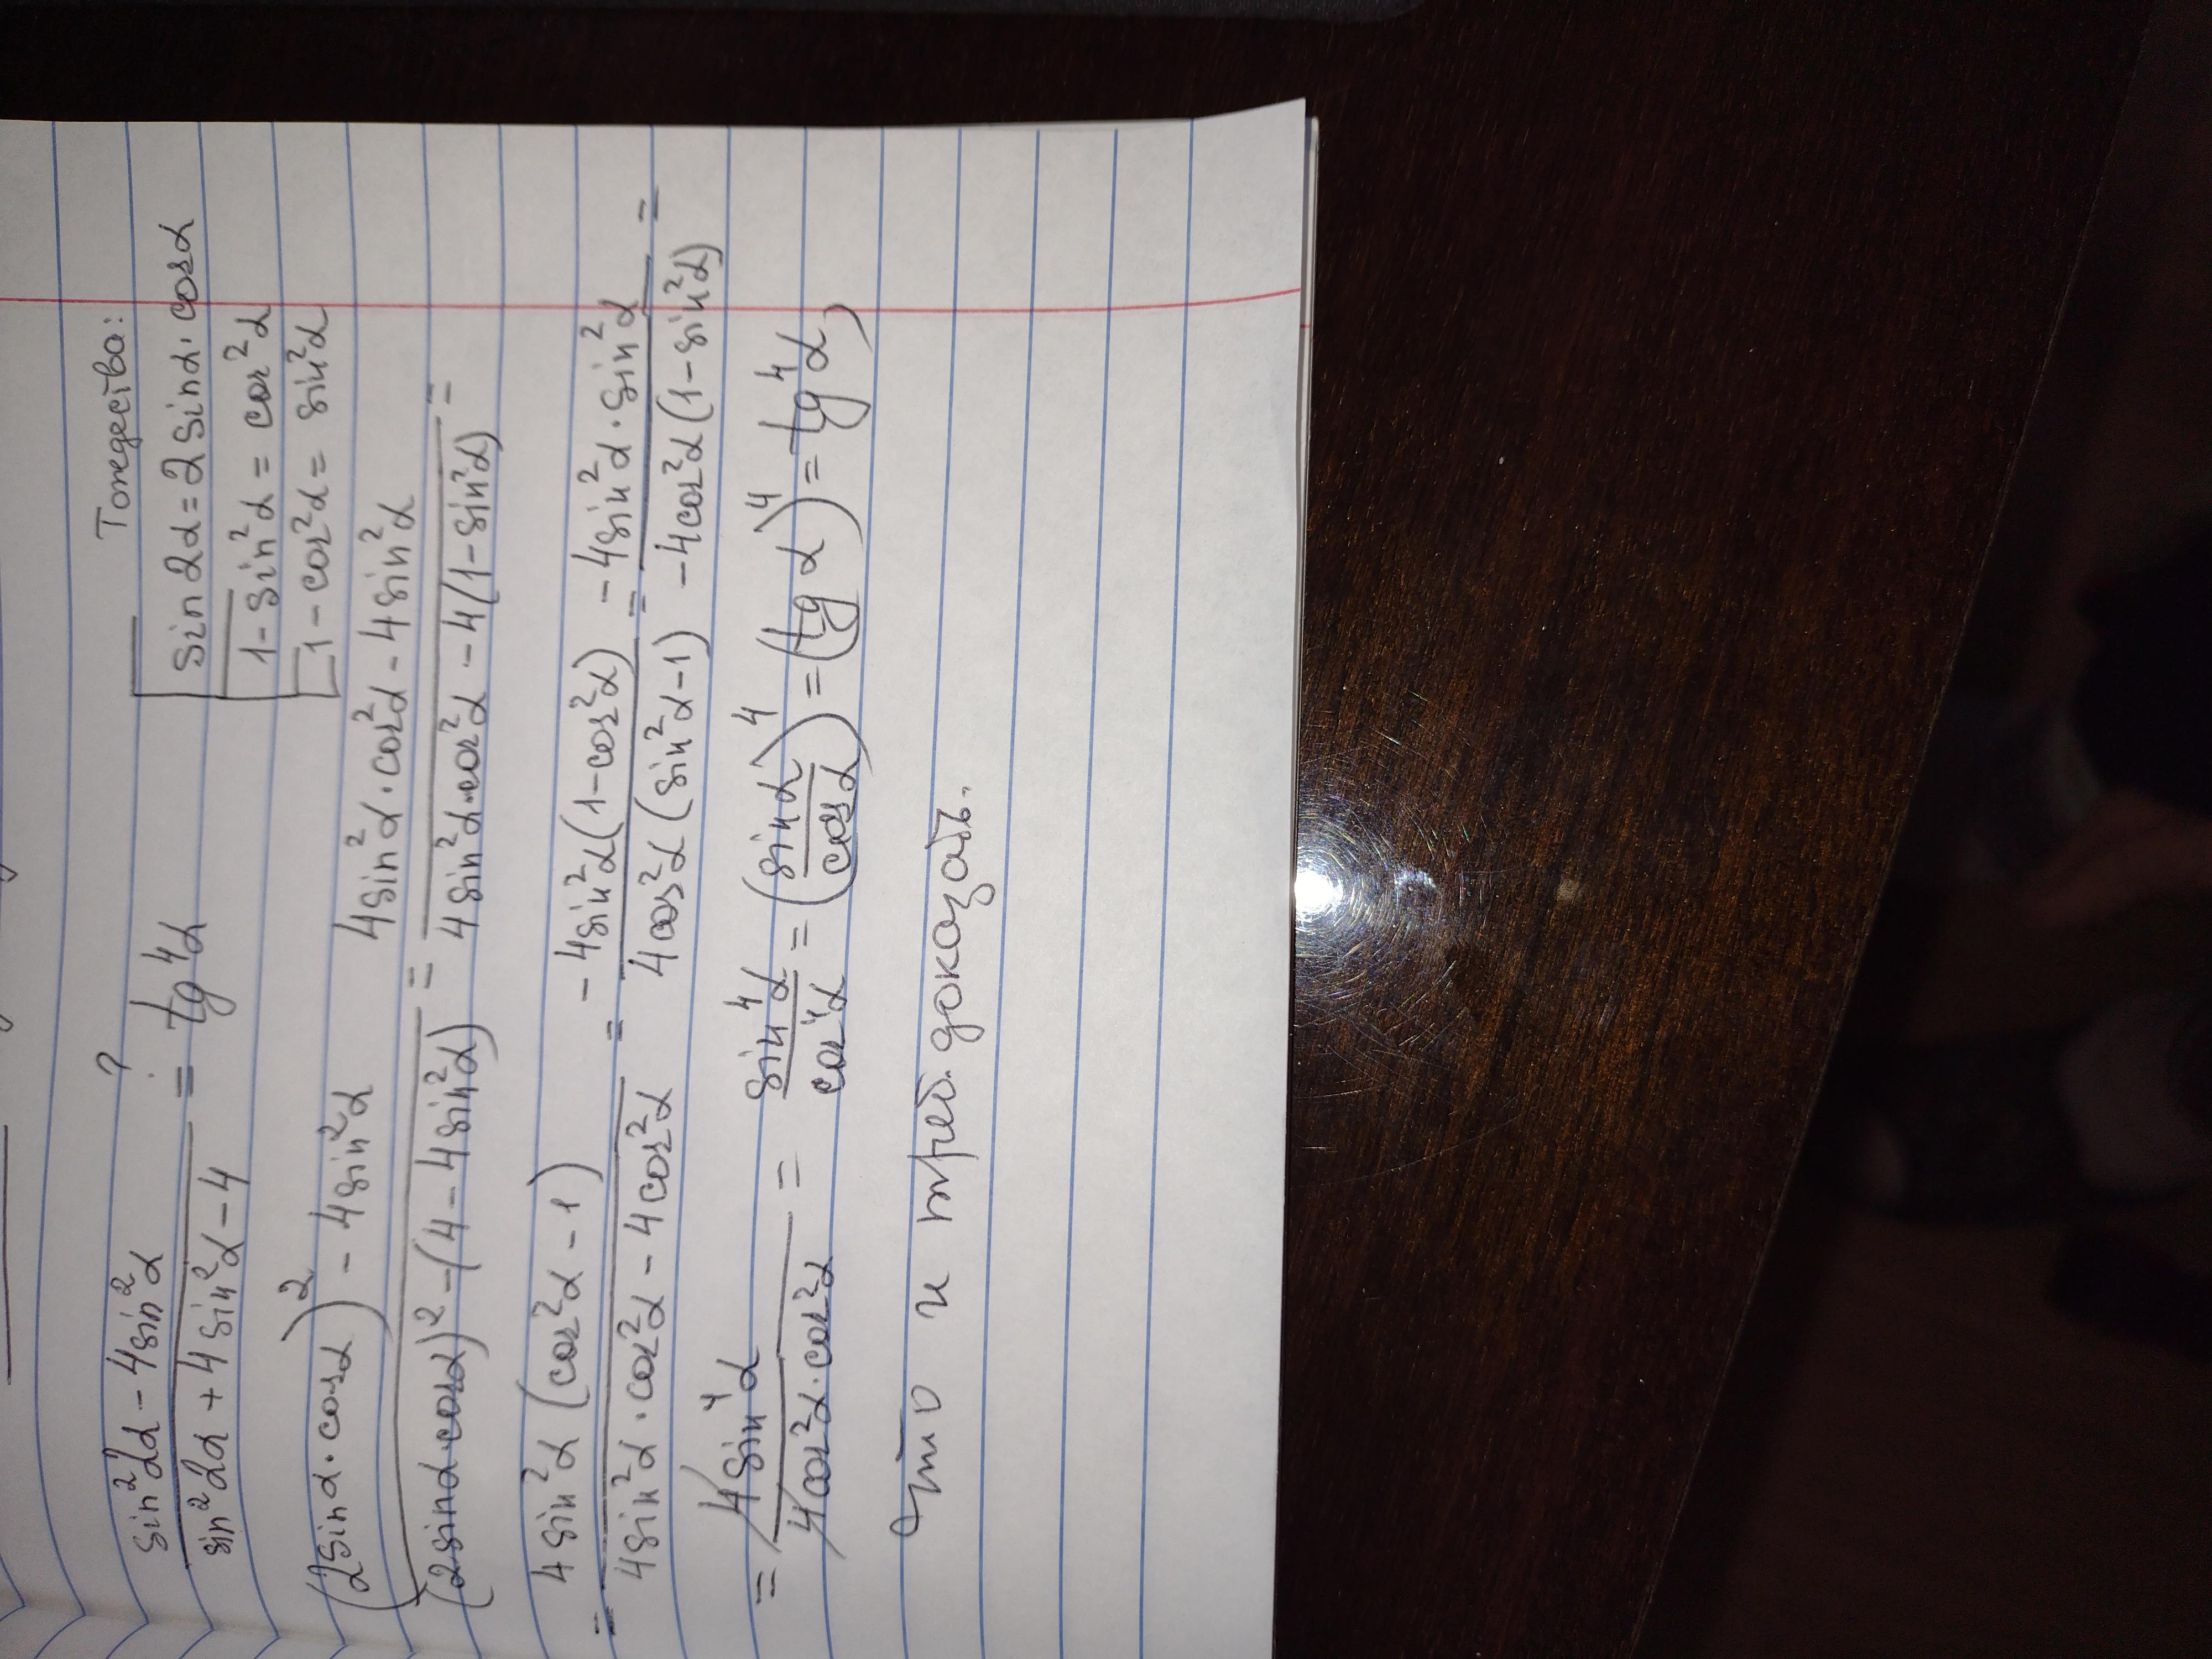 Тождества:
sin²2α - 4sin²α / sin²2α + 4sin²α - 4 =? tg⁴α
sin2α = 2sinα·cosα
1 - sin²α = cos²α
1 - cos²α = sin²α
(2sinα·cosα)² - 4sin²α / (2sinα·cosα)² - (4 - 4sin²α) = 4sin²α·cos²α - 4sin²α / 4sin²α·cos²α - 4(1 - sin²α) =
= 4sin²α(cos²α - 1) / 4sin²α·cos²α - 4cos²α = -4sin²α(1 - cos²α) / 4cos²α(sin²α - 1) = -4sin²α·sin²α / -4cos²α(1 - sin²α) =
= 4sin⁴α / 4cos²α·cos²α = sin⁴α / cos⁴α = (sinα / cosα)⁴ = (tgα)⁴ = tg⁴α,
что и треб. доказать.